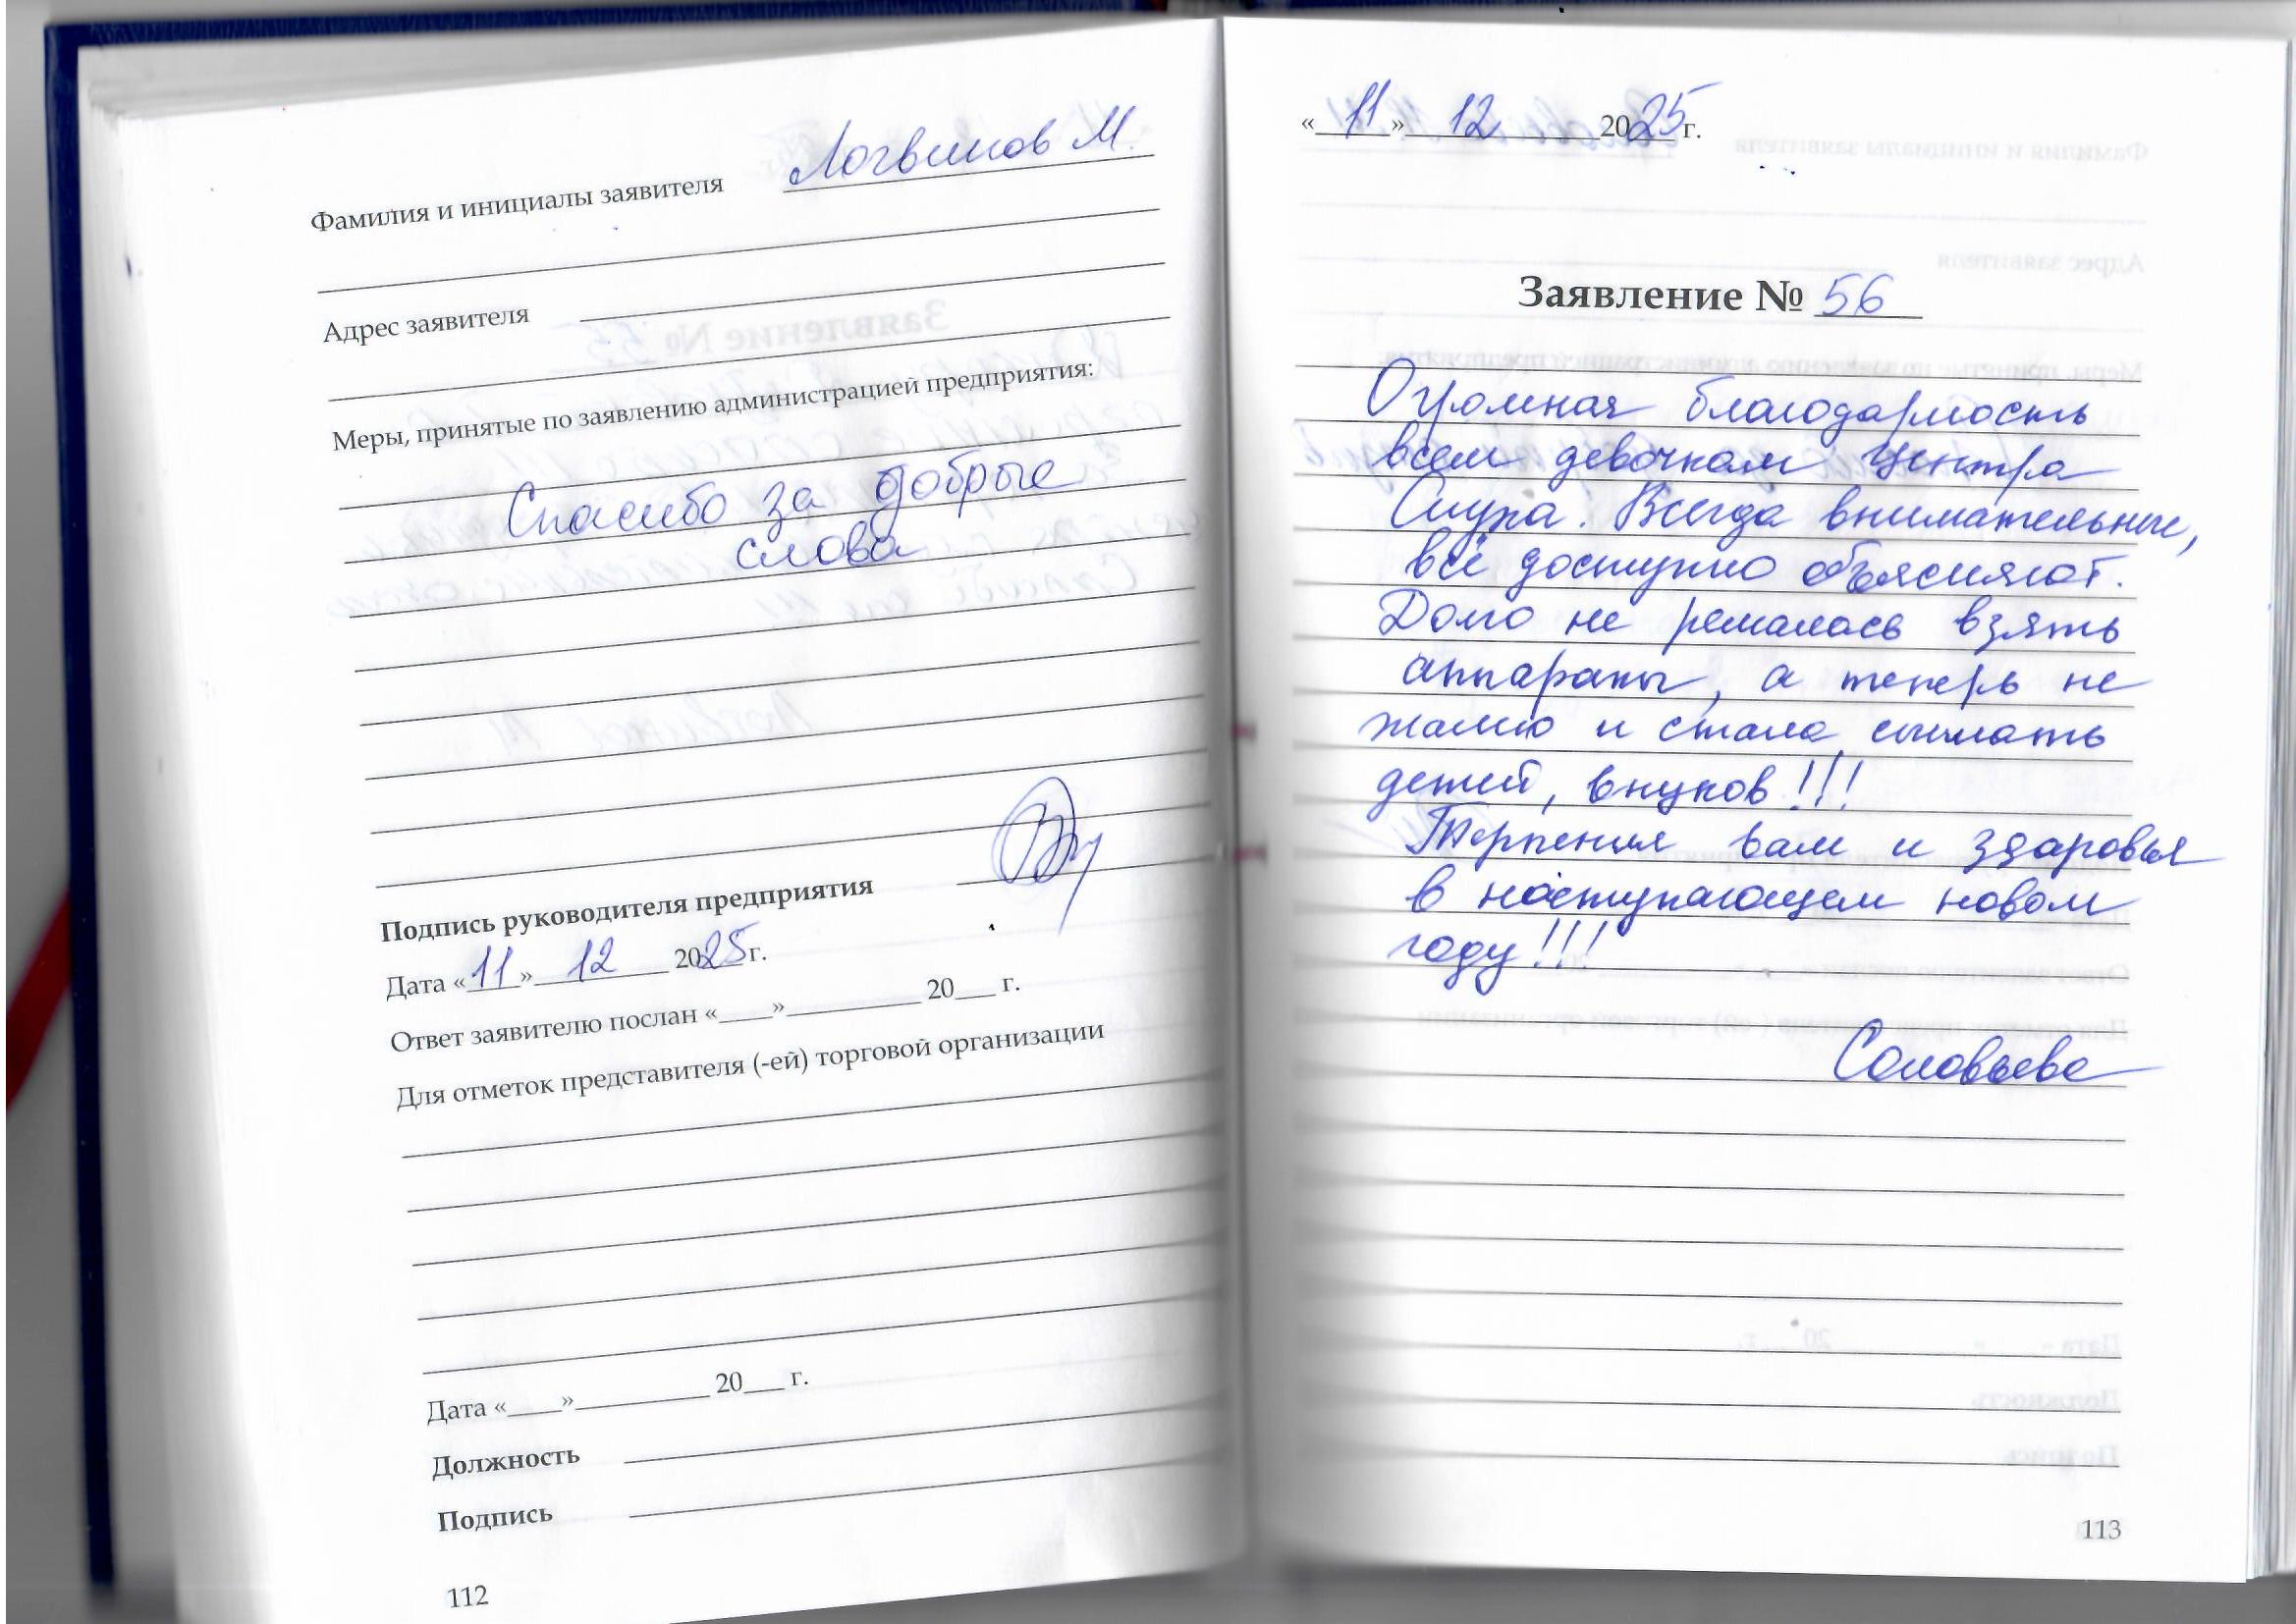 Фамилия и инициалы заявителя Логвинов М.
Адрес заявителя
Меры, принятые по заявлению администрацией предприятия:
Спасибо за добрые
слова
Подпись руководителя предприятия
Дата «11» 12 2025 г.
Ответ заявителю послан «____»__________ 20___ г.
Для отметок представителя (-ей) торговой организации
Дата «____»__________ 20___ г.
Должность
Подпись
112
«11» 12 2025 г.
Заявление № 56
Огромная благодарность
всем девочкам центра
Слуха. Всегда внимательные,
всё доступно объясняют.
Долго не решалась взять
аппараты, а теперь не
жалею и стала слышать
детей, внуков!!!
Терпения вам и здоровья
в наступающем новом
году!!!
Соловьева
113